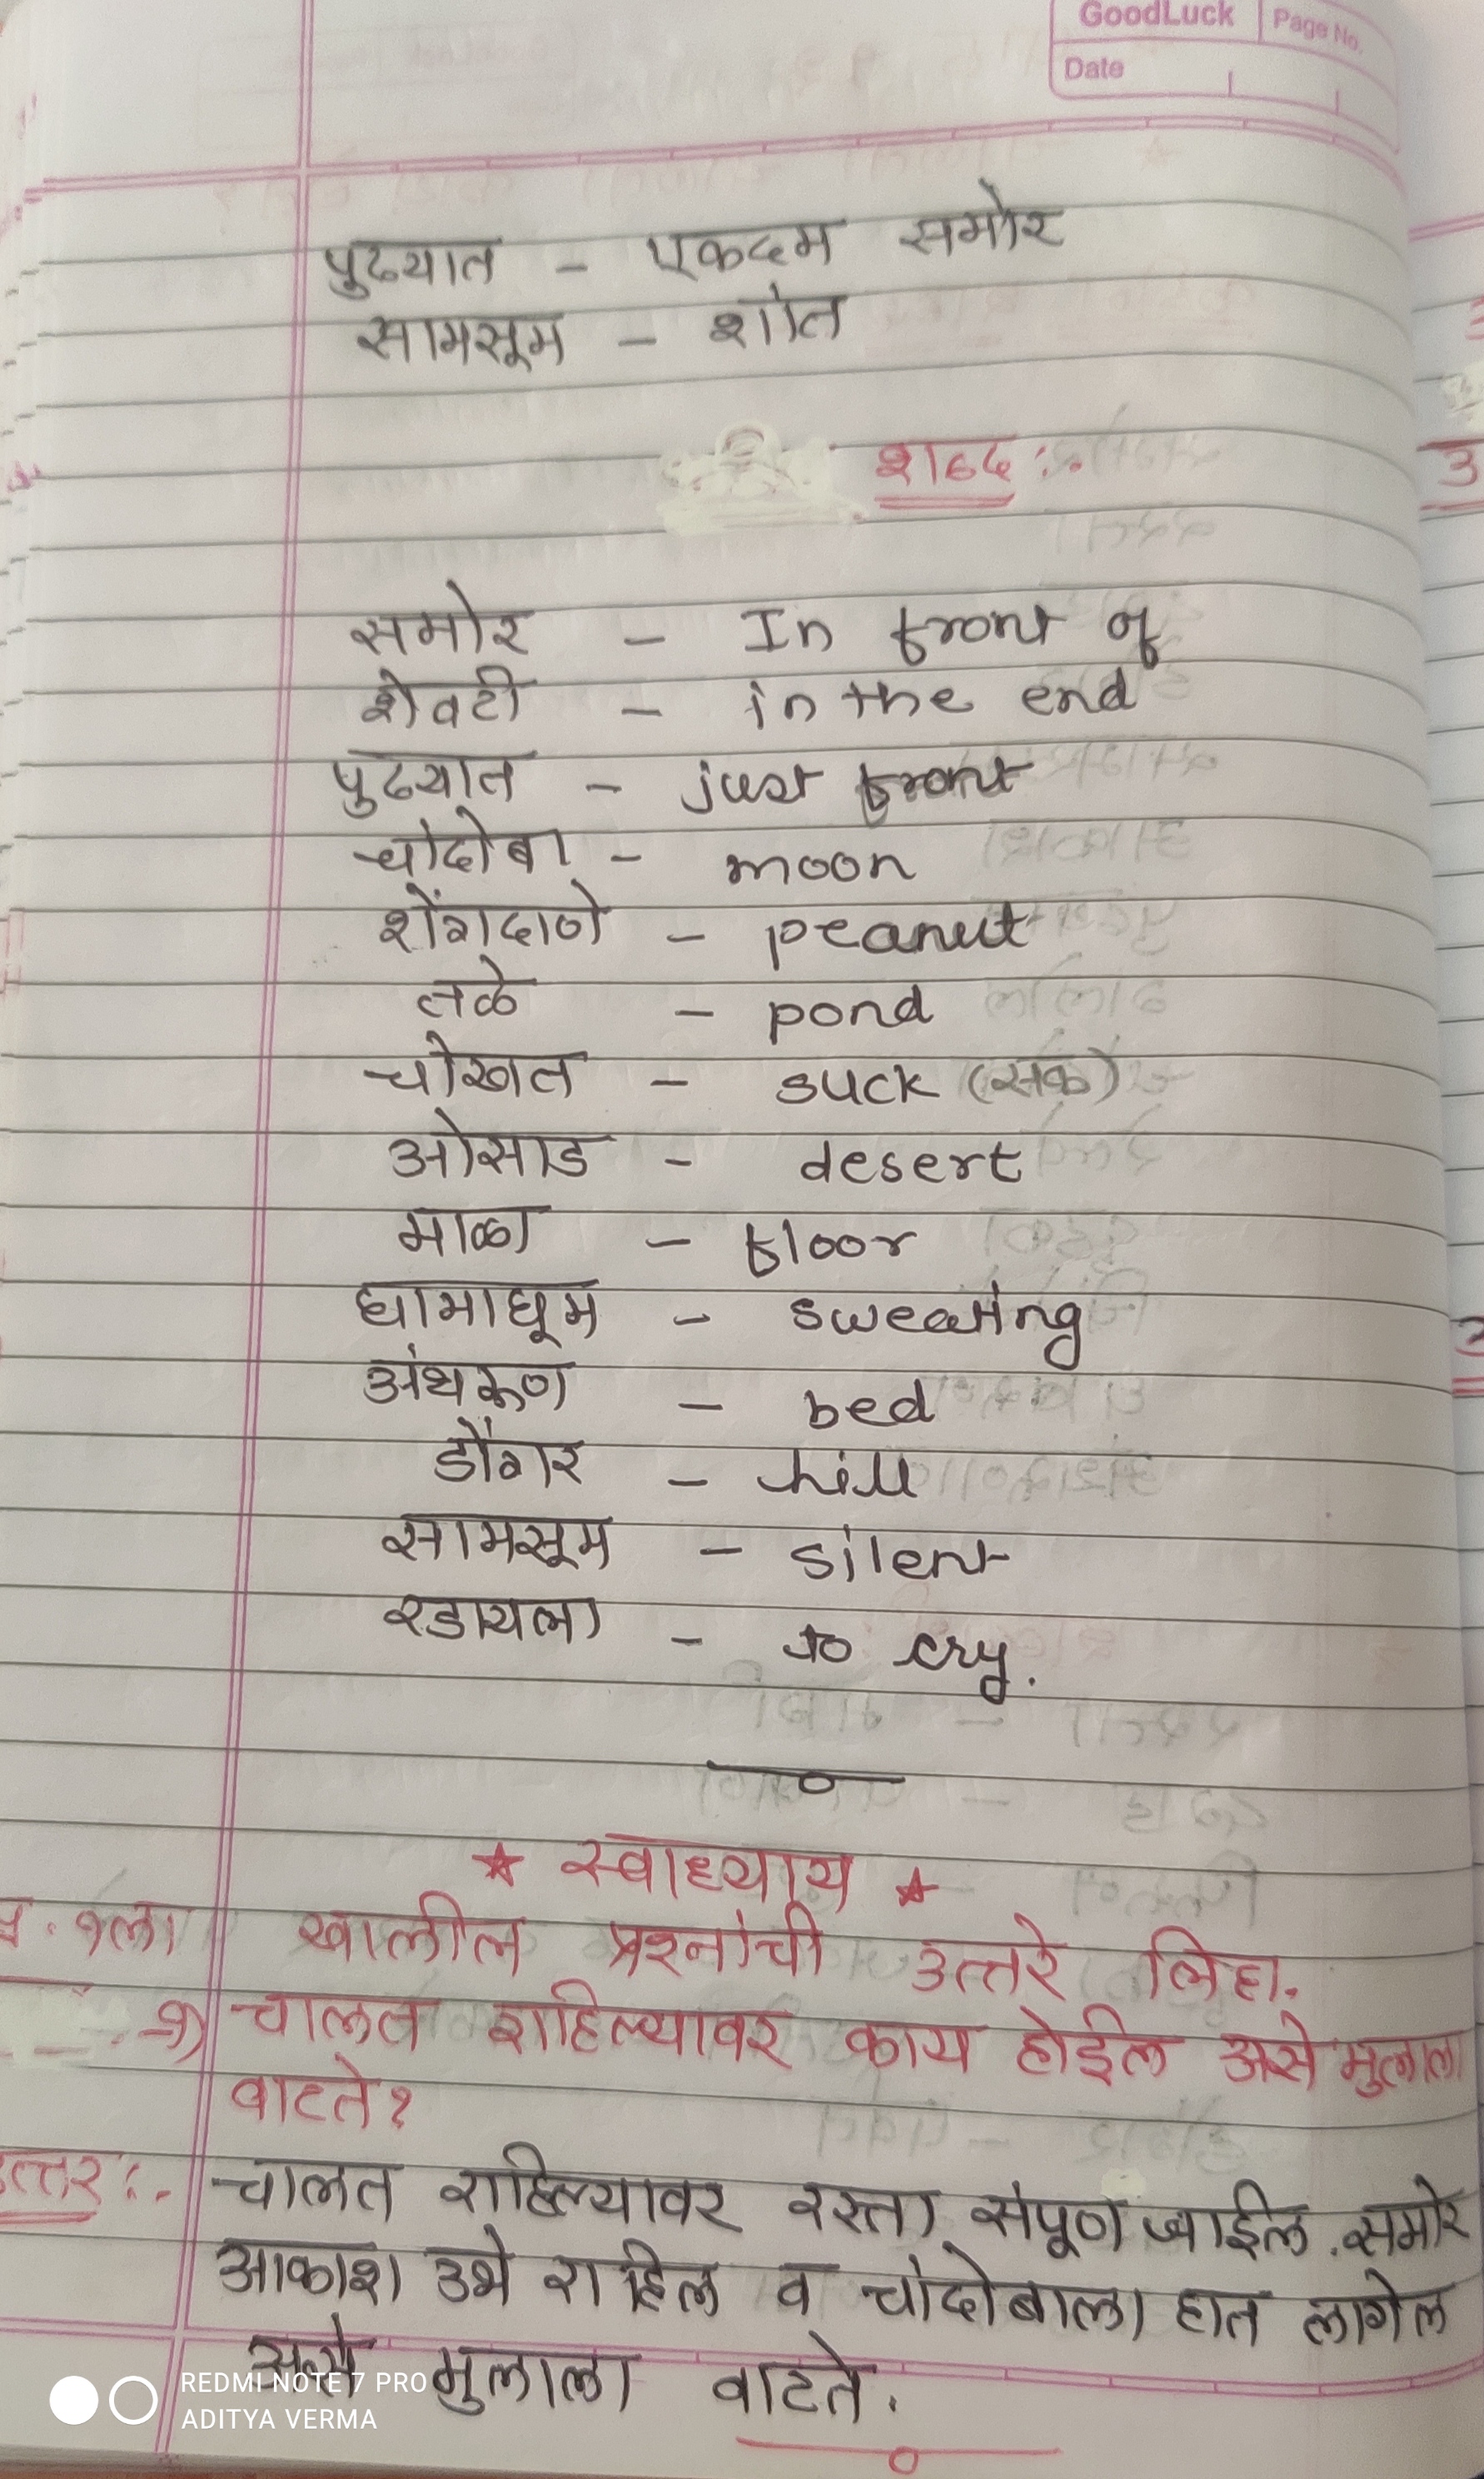 GoodLuck Page No.
Date
पुढयात - एकदम समोर
सामसूम - शांत
शब्द :-
समोर - In front of
शेवटी - in the end
पुढयात - just front
चांदोबा - moon
शेंगदाणे - peanut
तळे - pond
चोखत - suck (सक)
ओसाड - desert
माळा - floor
घामाघूम - sweating
अंथरूण - bed
डोंगर - hill
सामसूम - silent
रडायला - to cry.
★ स्वाध्याय ★
प्र. १ला खालील प्रश्नांची उत्तरे लिहा.
१) चालत राहिल्यावर काय होईल असे मुलाला
वाटते?
उत्तर :- चालत राहिल्यावर रस्ता संपूण जाईल. समोर
आकाश उभे राहिल व चांदोबाला हात लागेल
असे मुलाला वाटते.
REDMI NOTE 7 PRO
ADITYA VERMA